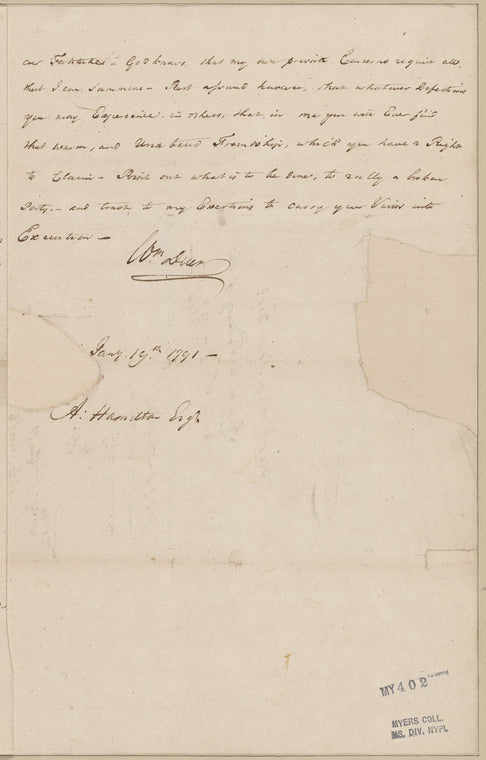 our Fortitude! God knows, that my own private Concerns require all,
that I can summons – Rest assured however, that whatever Defections
you may Experience in others, that in me you will Ever find
that warm, and Unabated Friendship, which you have a Right
to Claim – Point out what is to be done, to rally a broken
Party, – and trust to my Exertions to carry your Views into
Execution –
Wm Duer
Jany 19th 1791 –
A: Hamilton Esqr
MY 402
MYERS COLL.
MS. DIV. NYPL